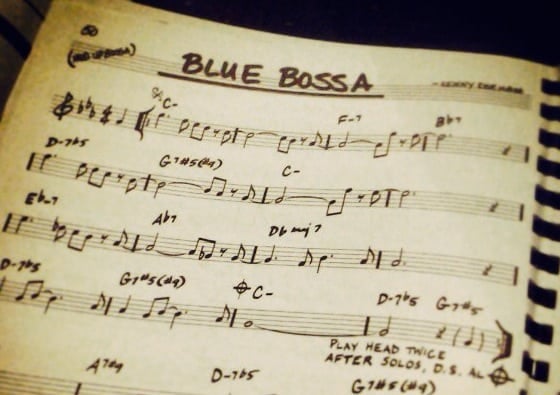 50
(MED. UP BOSSA)
BLUE BOSSA
- KENNY DORHAM
C- F-7 Bb7
D-7b5 G7#5(#9) C-
Eb-7 Ab7 Db maj7
D-7b5 G7#5(#9) C- D-7b5 G7#5
PLAY HEAD TWICE
AFTER SOLOS, D.S. AL
A7#9 D-7b5 G7#5(#9)